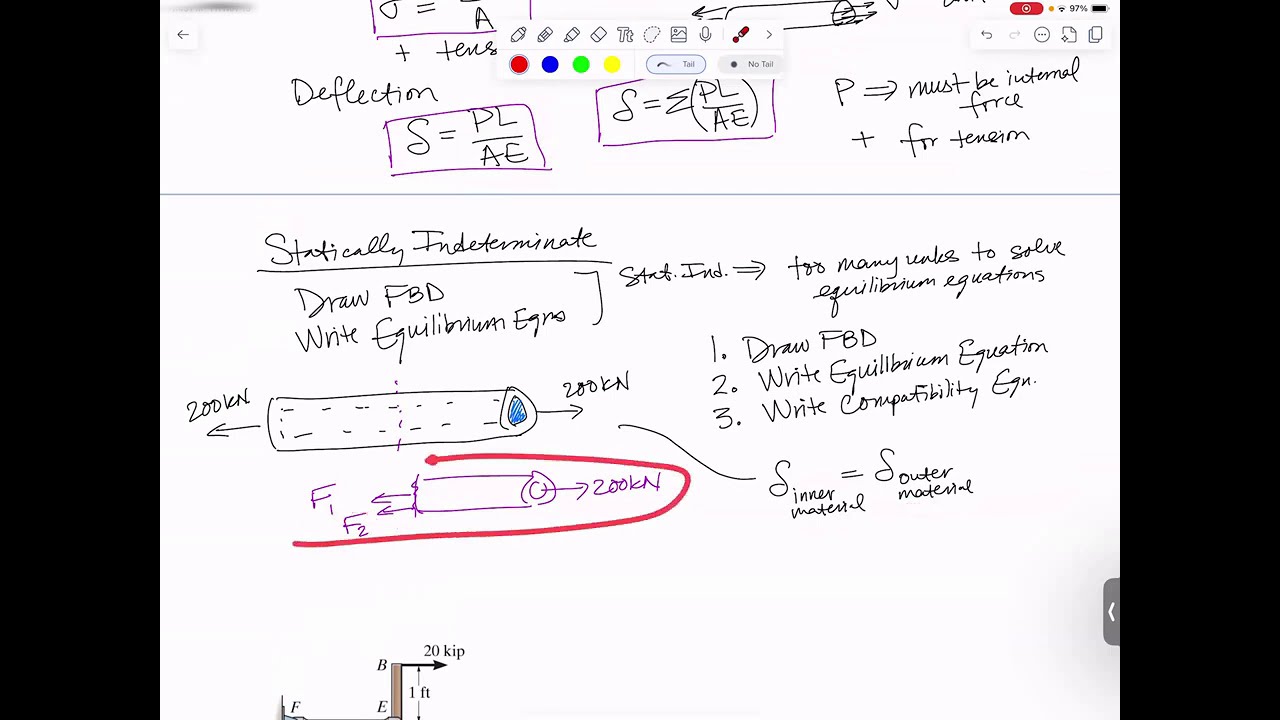 97%
σ = 
A
+ tens
Tt
Tail
No Tail
Deflection
δ = PL/AE
δ = Σ(PL/AE)
P ⇒ must be internal
force
+ for tension
Statically Indeterminate
Draw FBD
Write Equilibrium Eqns
Stat. Ind. ⇒ too many unks to solve
equilibrium equations
1. Draw FBD
2. Write Equilibrium Equation
3. Write Compatibility Eqn.
200kN
200kN
F1
F2
200kN
δ inner material = δ outer material
20 kip
B
1 ft
F
E